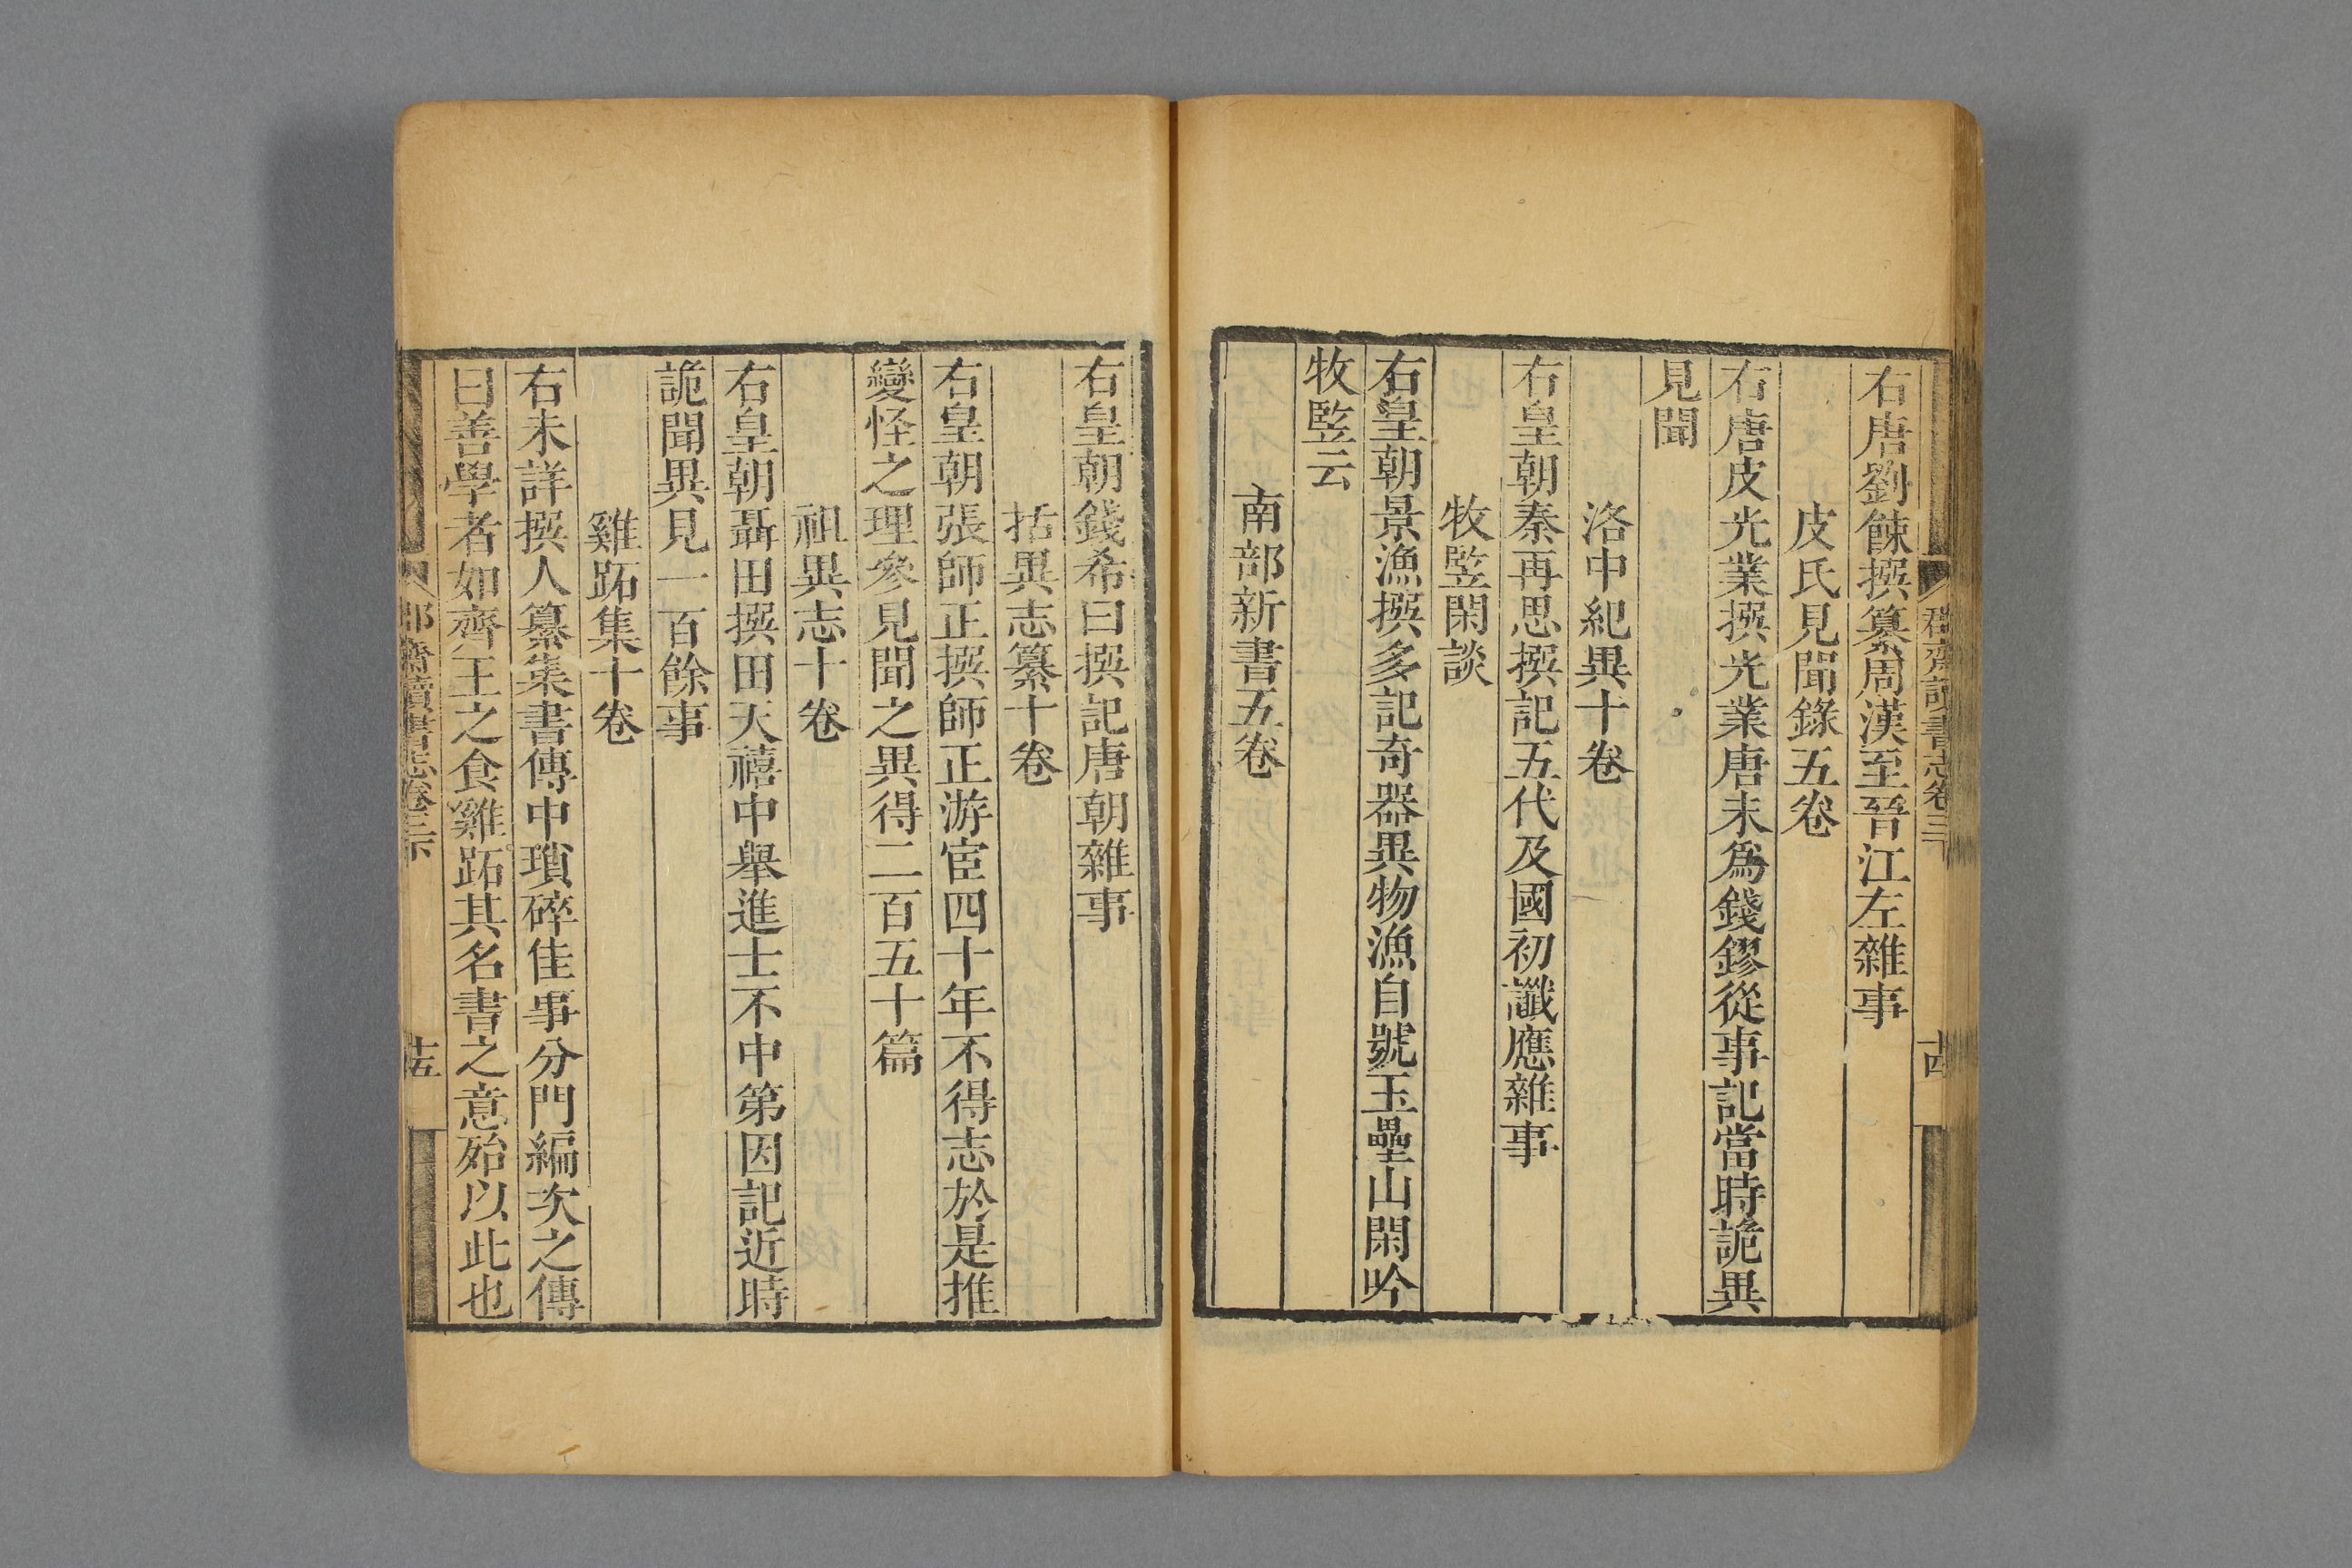 右唐劉餗撰纂周漢至晉江左雜事
皮氏見聞錄五卷
右唐皮光業撰光業唐末爲錢鏐從事記當時詭異
見聞
洛中紀異十卷
右皇朝秦再思撰記五代及國初讖應雜事
牧豎閑談
右皇朝景渙撰多記奇器異物漁自號玉壘山閑吟
牧豎云
南部新書五卷
右皇朝錢希曰撰記唐朝雜事
括異志纂十卷
右皇朝張師正撰師正游宦四十年不得志於是推
變怪之理參見聞之異得二百五十篇
祖異志十卷
右皇朝聶田撰田天禧中舉進士不中第因記近時
詭聞異見一百餘事
雞跖集十卷
右未詳撰人纂集書傳中瑣碎佳事分門編次之傳
曰善學者如齊王之食雞跖其名書之意殆以此也
郡齋讀書志卷三下
十五